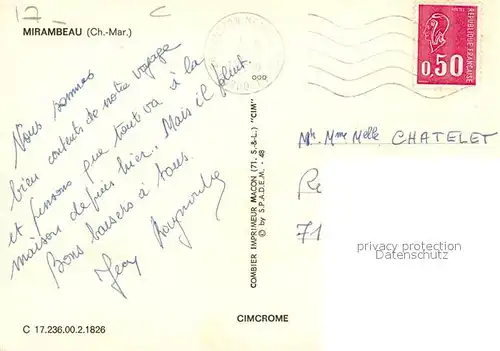 17 C
MIRAMBEAU (Ch.-Mar.)
REPUBLIQUE FRANCAISE
0,50
Nous sommes
bien contents de notre voyage
et pensons que tout va à la
maison depuis hier.. Mais il pleut.
Bons baisers à tous.
Jean
Mr. Mme Melle CHATELET
Re
71
privacy protection
Datenschutz
COMBIER IMPRIMEUR MACON (71. S.-&-L.) "CIM"
© by S.P.A.D.E.M. - 48
CIMCROME
C 17.236.00.2.1826